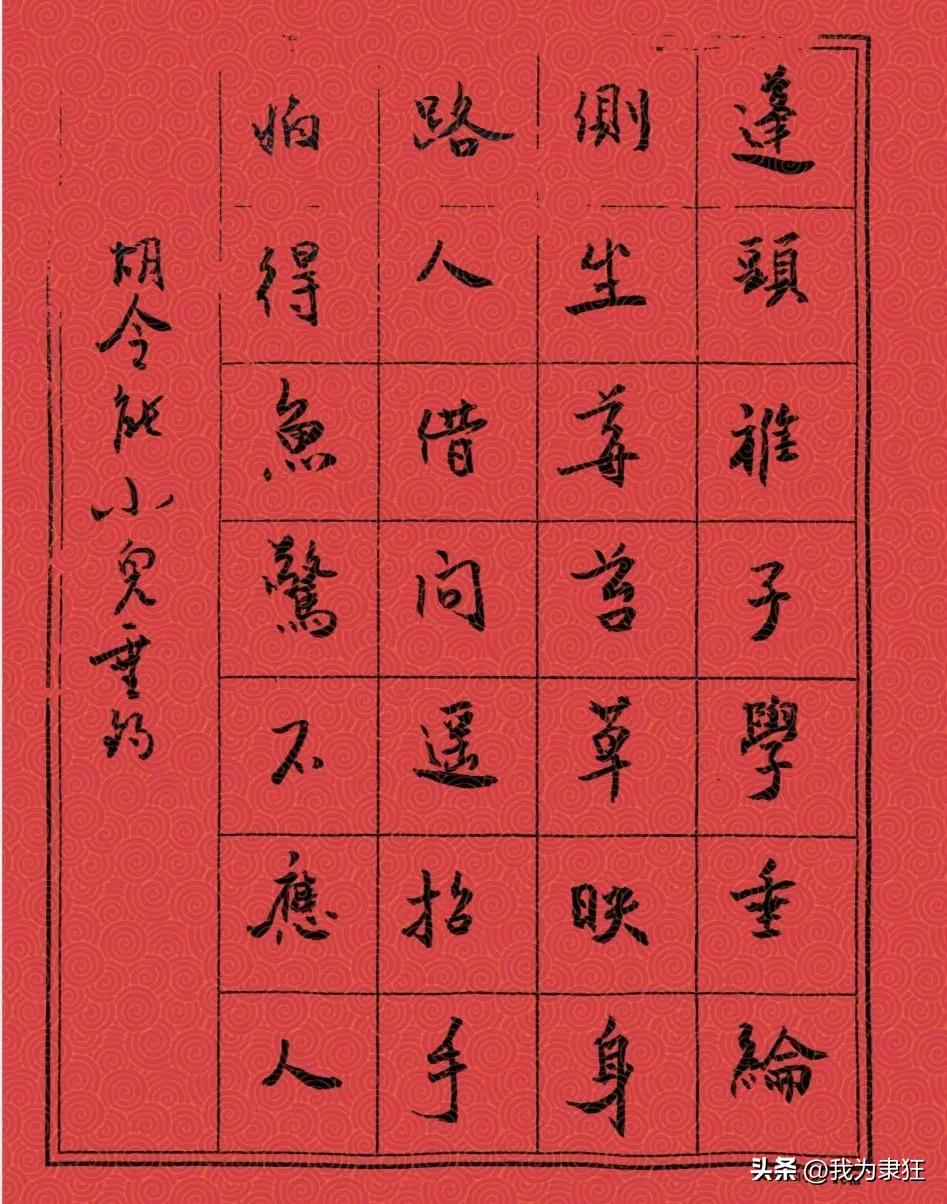 蓬頭稚子學垂綸
側坐莓苔草映身
路人借問遥招手
怕得魚驚不應人
胡令能小兒垂釣
头条 @我为隶狂